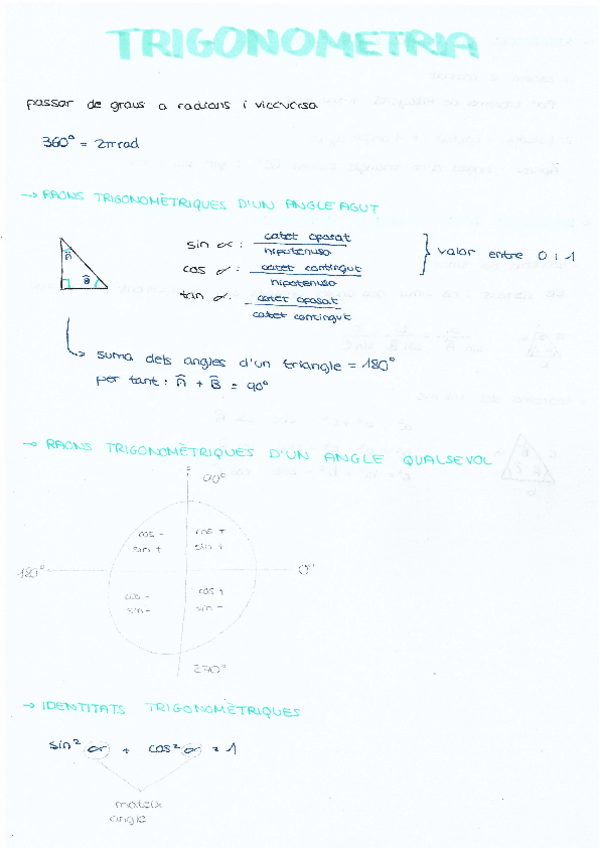 TRIGONOMETRIA
passar de graus a radians i viceversa
360° = 2π rad
→ RAONS TRIGONOMÈTRIQUES D'UN ANGLE AGUT
Â
B̂
sin α: catet oposat
hipotenusa
cos α: catet contingut
hipotenusa
tan α: catet oposat
catet contingut
} valor entre 0 i 1
↳ suma dels angles d'un triangle = 180°
per tant: Â + B̂ = 90°
→ RAONS TRIGONOMÈTRIQUES D'UN ANGLE QUALSEVOL
90°
cos - cos +
sin + sin +
180° 0°
cos - cos +
sin - sin -
270°
→ IDENTITATS TRIGONOMÈTRIQUES
sin² α + cos² α = 1
mateix
angle